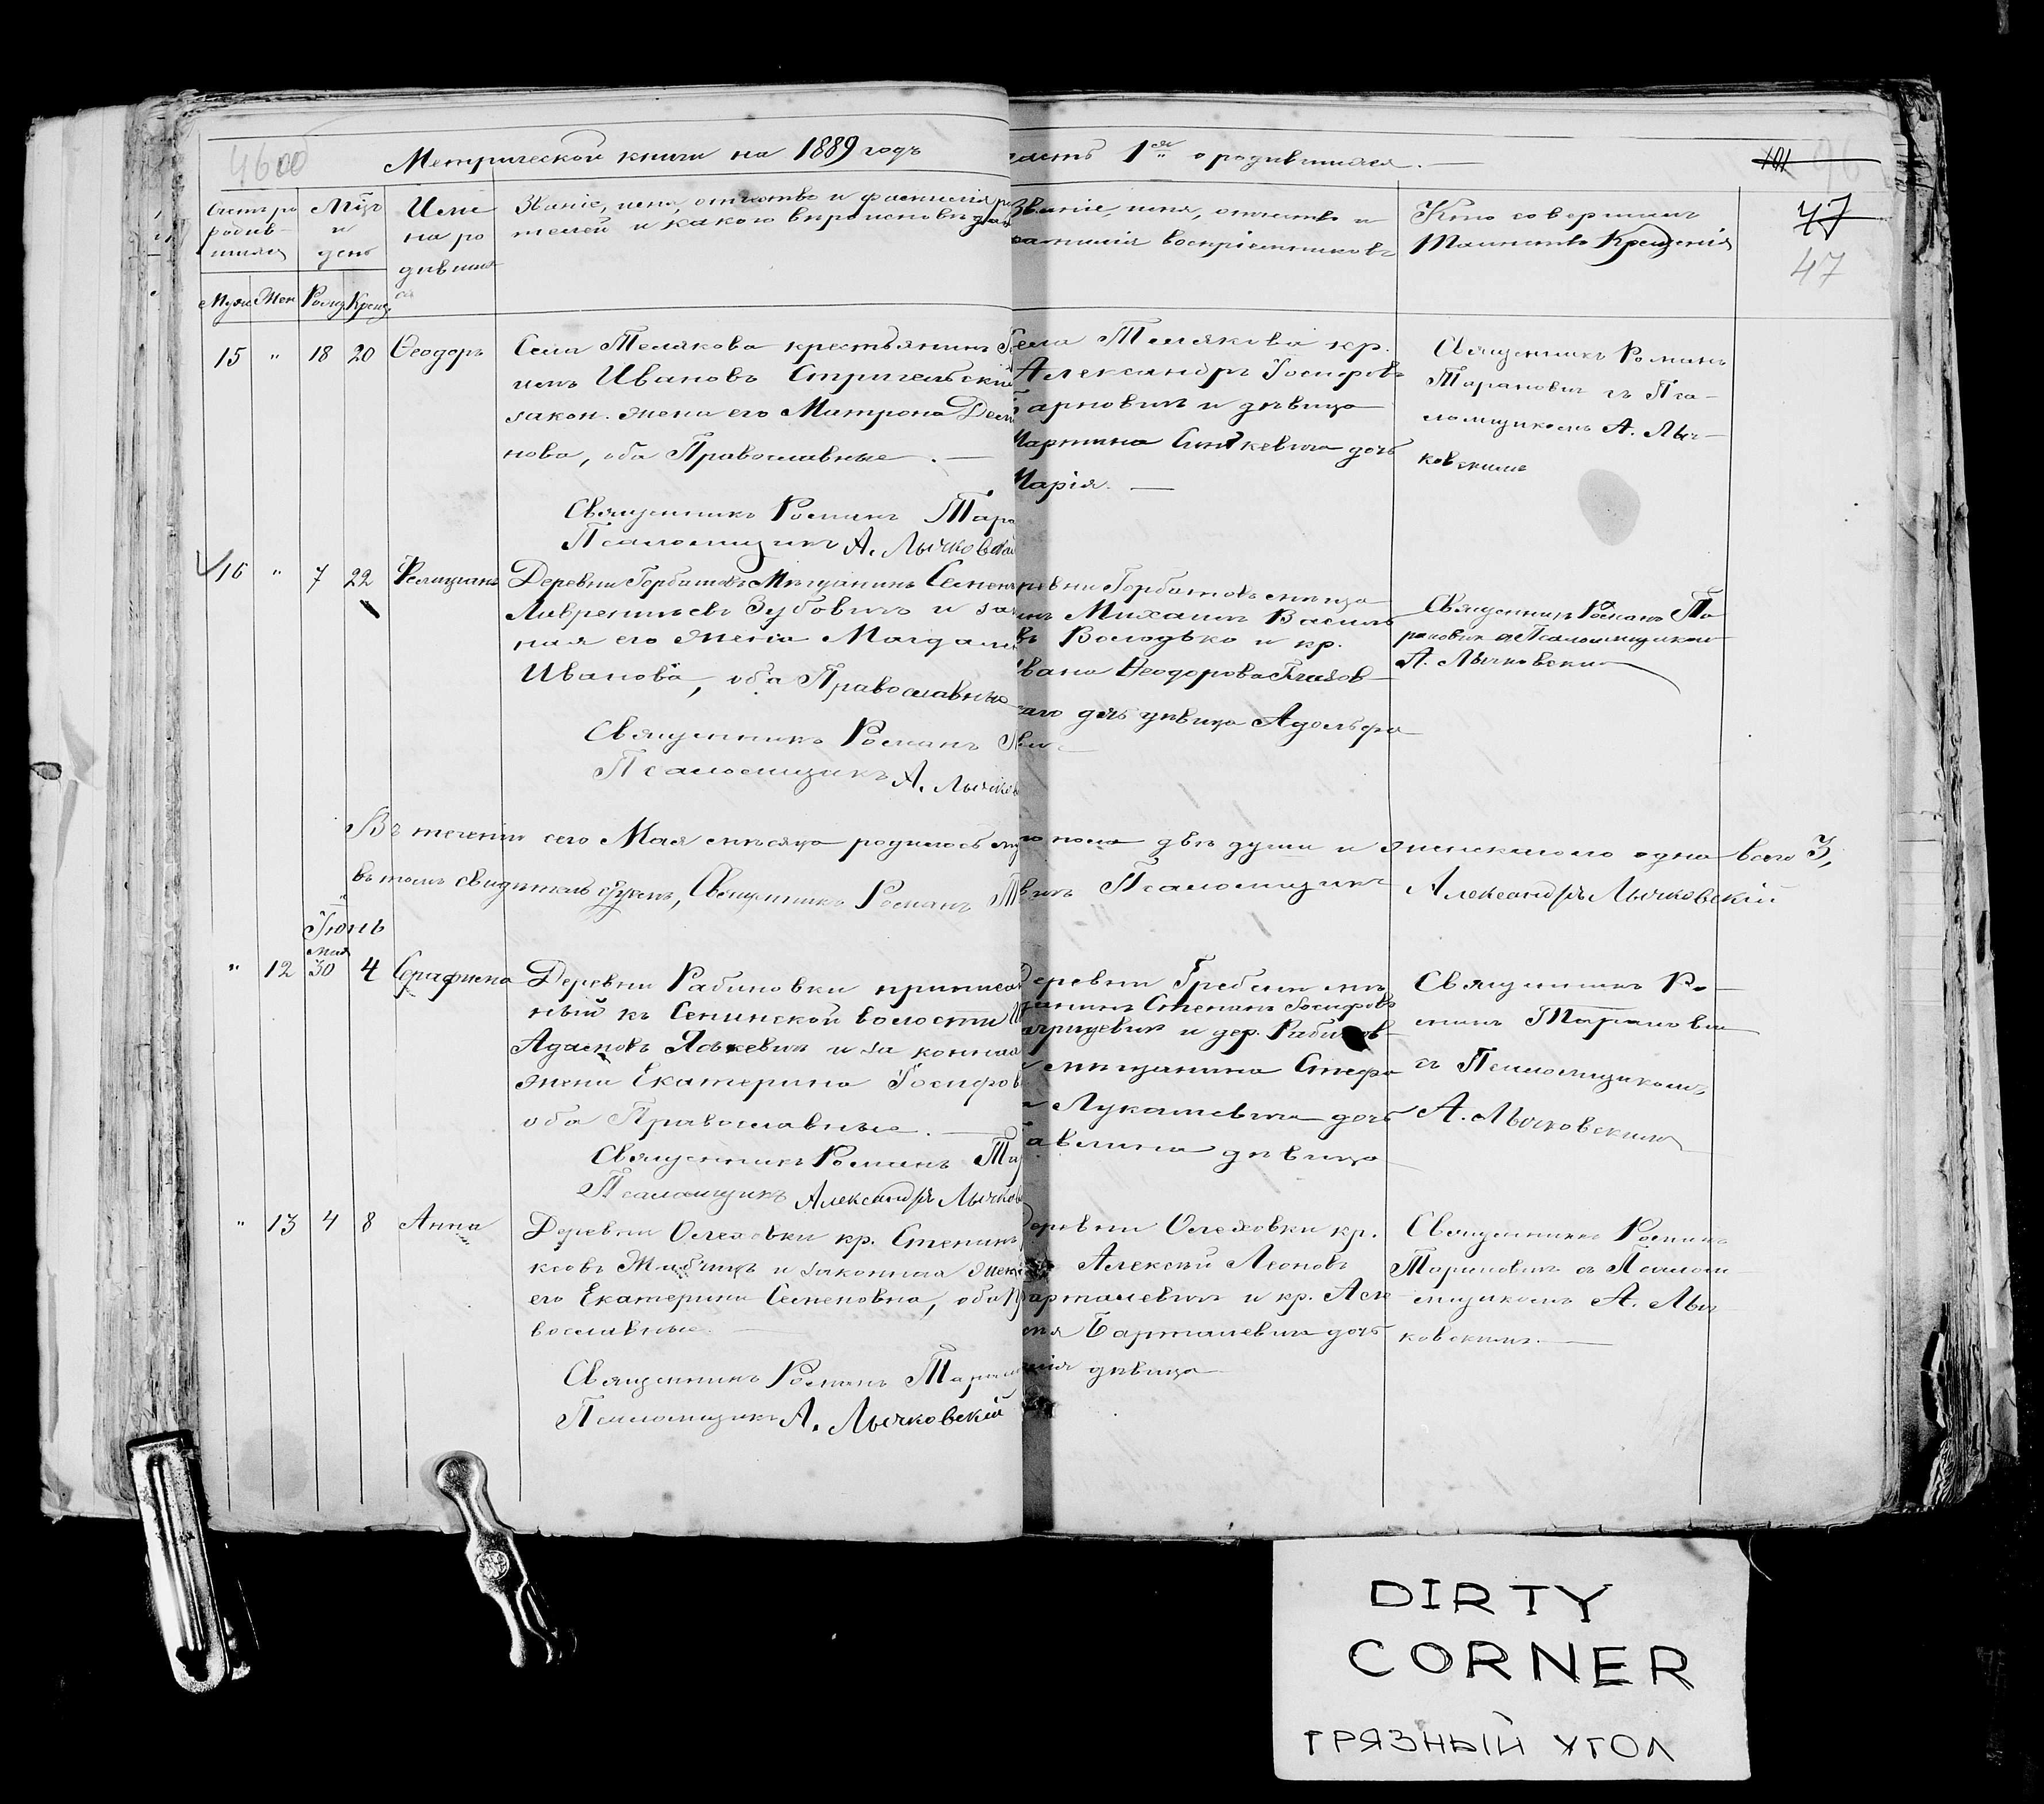 4600
Метрической книги на 1889 годъ
часть 1ая о родившихся.
101
96
47
47
Счетъ ро
дивш
шихся
Мцъ
и
день
Име
на ро
дивших
ся
Званіе, имя, отчество и фамилія ро
телей и какого вѣроисповѣда
Званіе, имя, отчество и
фамилія воспріемниковъ
Кто совершалъ
Таинство Крещенія
Муж Жен Рожд Крещ.
15 " 18 20 Ѳеодоръ
Села Телякова крестьянинъ
Ивановъ Стригельскій
закон. жена его Матрона
нова, оба Православные. —
Священникъ Романъ Тара
Псаломщикъ А. Лычковскій
Села Телякова кр.
Александръ Іосифовъ
и дѣвица
Мартина дочь
Марія. —
Священникъ Романъ
Таранович съ Пса-
ломщикомъ А. Лыч-
ковскимъ
16 " 7 22 Фелиціанъ
Деревни Горбатовъ Мѣщанинъ Семенъ
Лаврентьевъ Зубовичъ и за
ная его жена Магдали
Иванова, оба Православные
Священникъ Романъ
Псаломщикъ А. Лычков
ревни Горбатовъ мѣща
инъ Михаилъ Василь
въ Володько и кр.
Ивана Ѳеодорова
каго дочь дѣвица Адольфа
Священникъ Романъ Та
рановичъ съ Псаломщикомъ
А. Лычковскимъ
Въ теченіи сего Мая мѣсяца родилось му
го пола двѣ души и женскаго одна всего 3,
въ томъ свидѣтельствуемъ, Священникъ Романъ Т
вичъ Псаломщикъ Александръ Лычковскій
Іюнь
мая
" 12 30 4 Серафима
Деревни Рабиновки приписан
ный къ Сенинской волости
Адамовъ Яцкевичъ и законная
жена Екатерина Іосифов
оба Православные. —
Священникъ Романъ Та
Псаломщикъ Александръ Лычков
Деревни Гребень мѣ
щанинъ Степанъ Іосифовъ
и дер. Рабинов-
и мѣщанина Стефа
на Лукашевича дочь
Павлина дѣвица
Священникъ Ро-
манъ Таранович
съ Псаломщикомъ
А. Лычковскимъ
" 13 4 8 Анна
Деревни Олеховки кр. Степанъ
ксовъ и законная жена
его Екатерина Семеновна, оба Пра
вославные. —
Священникъ Романъ Таран
Псаломщикъ А. Лычковскій
Деревни Олеховки кр.
Алексѣй Леоновъ
Барташевичъ и кр. Але
Барташевича дочь
дѣвица
Священникъ Романъ
Тарановичъ съ Псалом
щикомъ А. Лыч
ковскимъ. —
DIRTY
CORNER
ГРЯЗНЫЙ УГОЛ